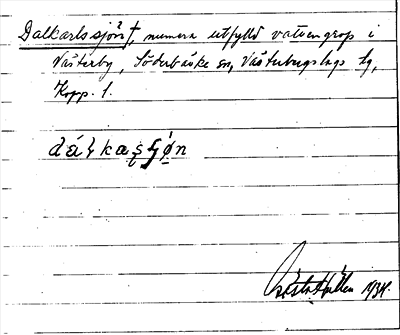 Dalkarlssjön†, numera utfylld vattengrop i
Västerby, Söderbärke sn, Västerbergslags tg,
Kopp. l.
dálkaşşjọ́n
1934.